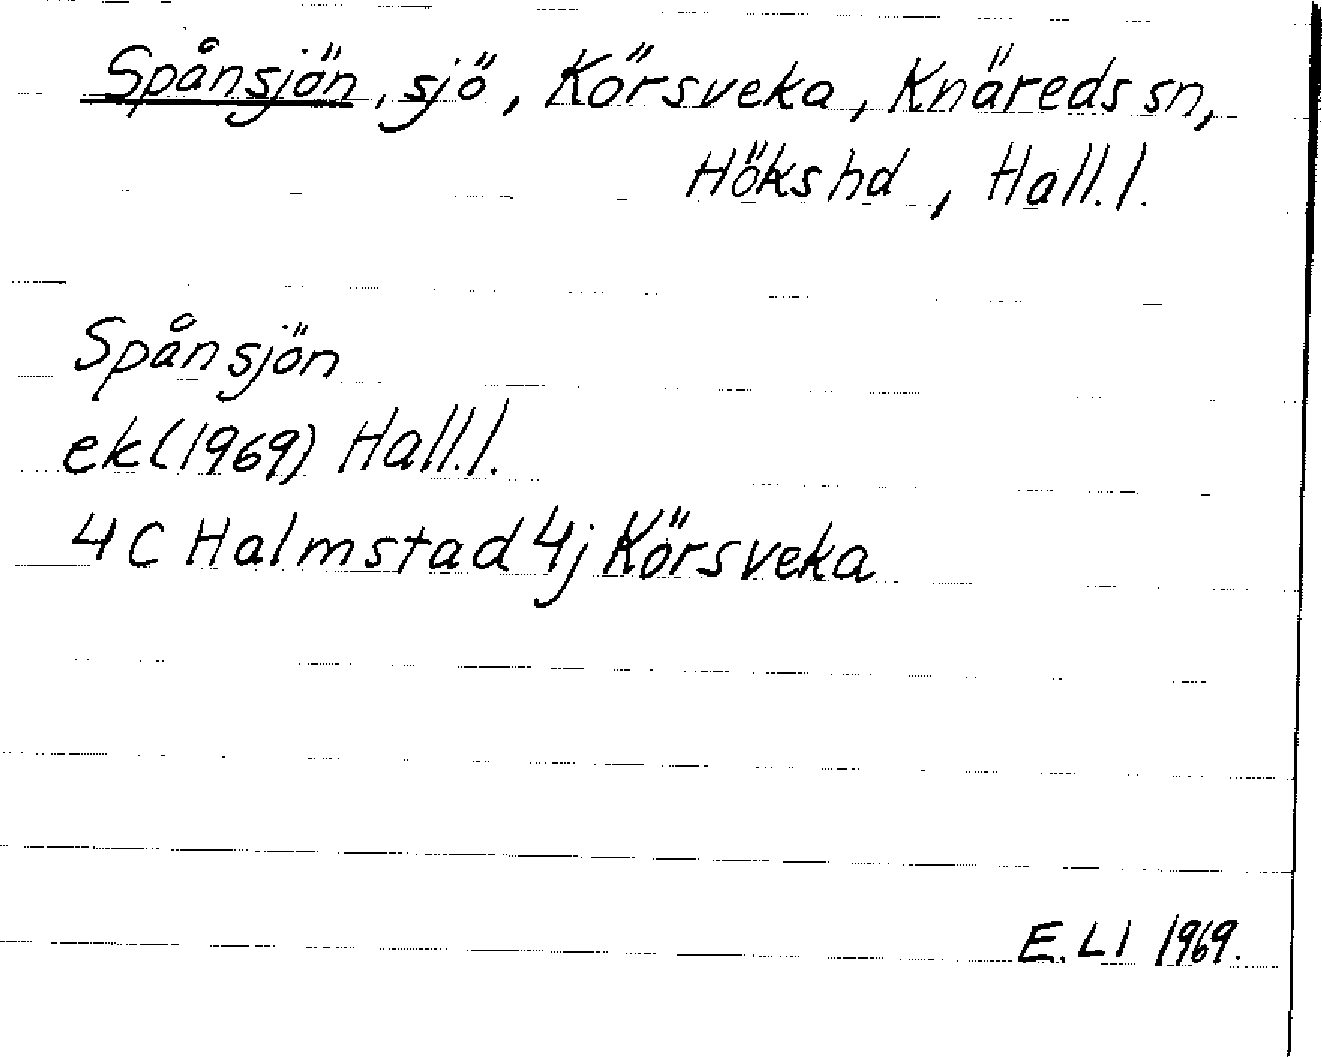 Spånsjön, sjö, Körsveka, Knäreds sn,
Höks hd, Hall.l.
Spånsjön
ek(1969) Hall.l.
4C Halmstad 4j Körsveka
E. LI 1969.